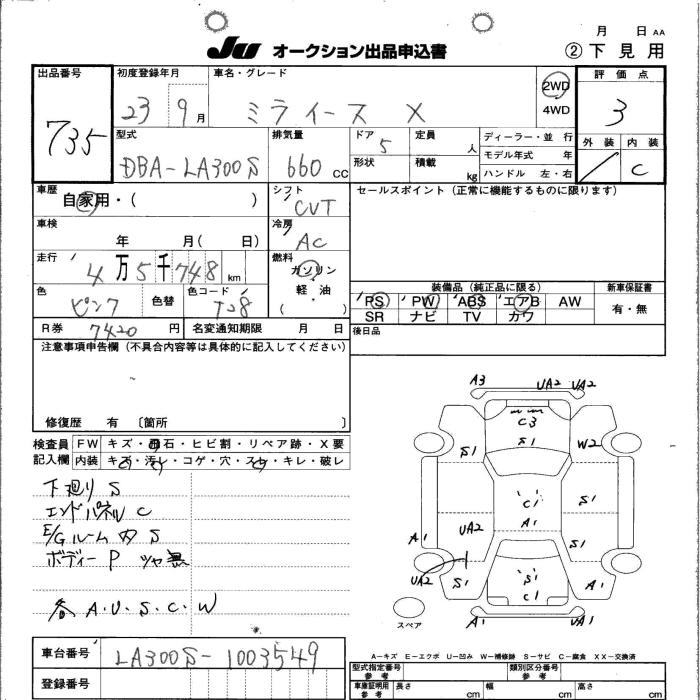 月 日 AA
JU オークション出品申込書 ②下見用
出品番号 初度登録年月 車名・グレード 評価点
735 23 9月 ミライース X 2WD 4WD 3
型式 排気量 ドア 定員 ディーラー・並行 外装 内装
DBA-LA300S 660cc 5 人 モデル年式 年 C
形状 積載 kg ハンドル 左・右
車歴 シフト セールスポイント(正常に機能するものに限ります)
自家用・( ) CVT
車検 冷房
年 月( 日) AC
走行 燃料
4万5千748km ガソリン
軽・油
( )
色 色替 色コード 装備品(純正品に限る) 新車保証書
ピンク T28 PS PW ABS エアB AW 有・無
SR ナビ TV カワ
R券 7420円 名変通知期限 月 日 後日品
注意事項申告欄(不具合内容等は具体的に記入してください)
修復歴 有 〔箇所 〕
検査員 FW キズ・飛石・ヒビ割・リペア跡・X要
記入欄 内装 キズ・汚れ・コゲ・穴・スレ・キレ・破レ
下廻り S
エンドパネル C
E/Gルーム内 S
ボディー P ツヤ無
各 A.U.S.C.W
A3 UA2 UA2
C3
S1 S1 W2
C1 S1
A1 UA2 A1 S1
UA2 S1 S1 A1
C1
A1 UA1
スペア
A-キズ E-エクボ U-凹み W-補修跡 S-サビ C-腐食 XX-交換済
車台番号 LA300S-1003549
登録番号
型式指定番号 参考 類別区分番号 参考
車庫証明用 参考 長さ cm 幅 cm 高さ cm